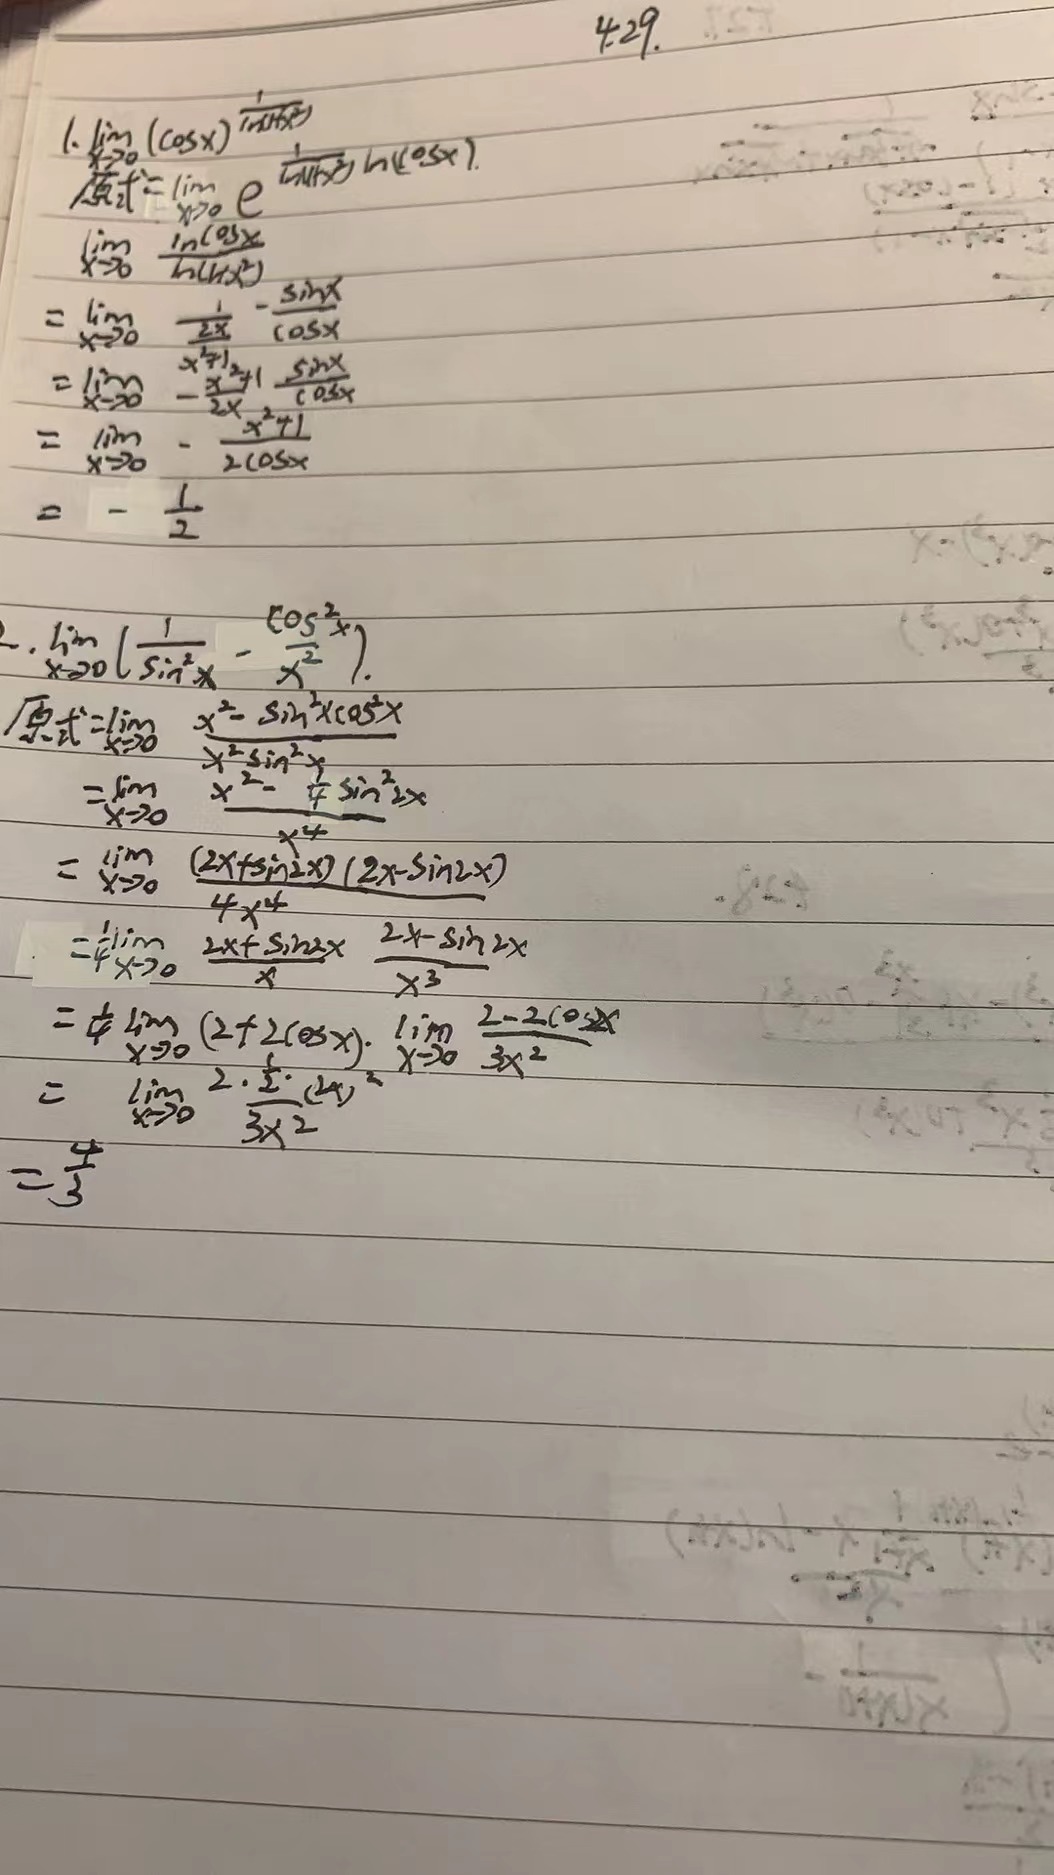 4.29.
1. lim x→0 (cosx)^(1/ln(1+x²))
原式=lim x→0 e^(1/ln(1+x²) ln(cosx)).
lim x→0 lncosx/ln(1+x²)
= lim x→0 1/(2x/(x²+1)) -sinx/cosx
= lim x→0 -(x²+1)/2x sinx/cosx
= lim x→0 - (x²+1)/2cosx
= - 1/2
2. lim x→0 (1/sin²x - cos²x/x²).
原式=lim x→0 (x²-sin²xcos²x)/(x²sin²x)
=lim x→0 (x²- 1/4 sin²2x)/x⁴
= lim x→0 (2x+sin2x)(2x-sin2x)/4x⁴
=1/4 lim x→0 (2x+sin2x)/x (2x-sin2x)/x³
= 1/4 lim x→0 (2+2cosx). lim x→0 (2-2cos2x)/3x²
= lim x→0 2·1/2·(2x)²/3x²
= 4/3